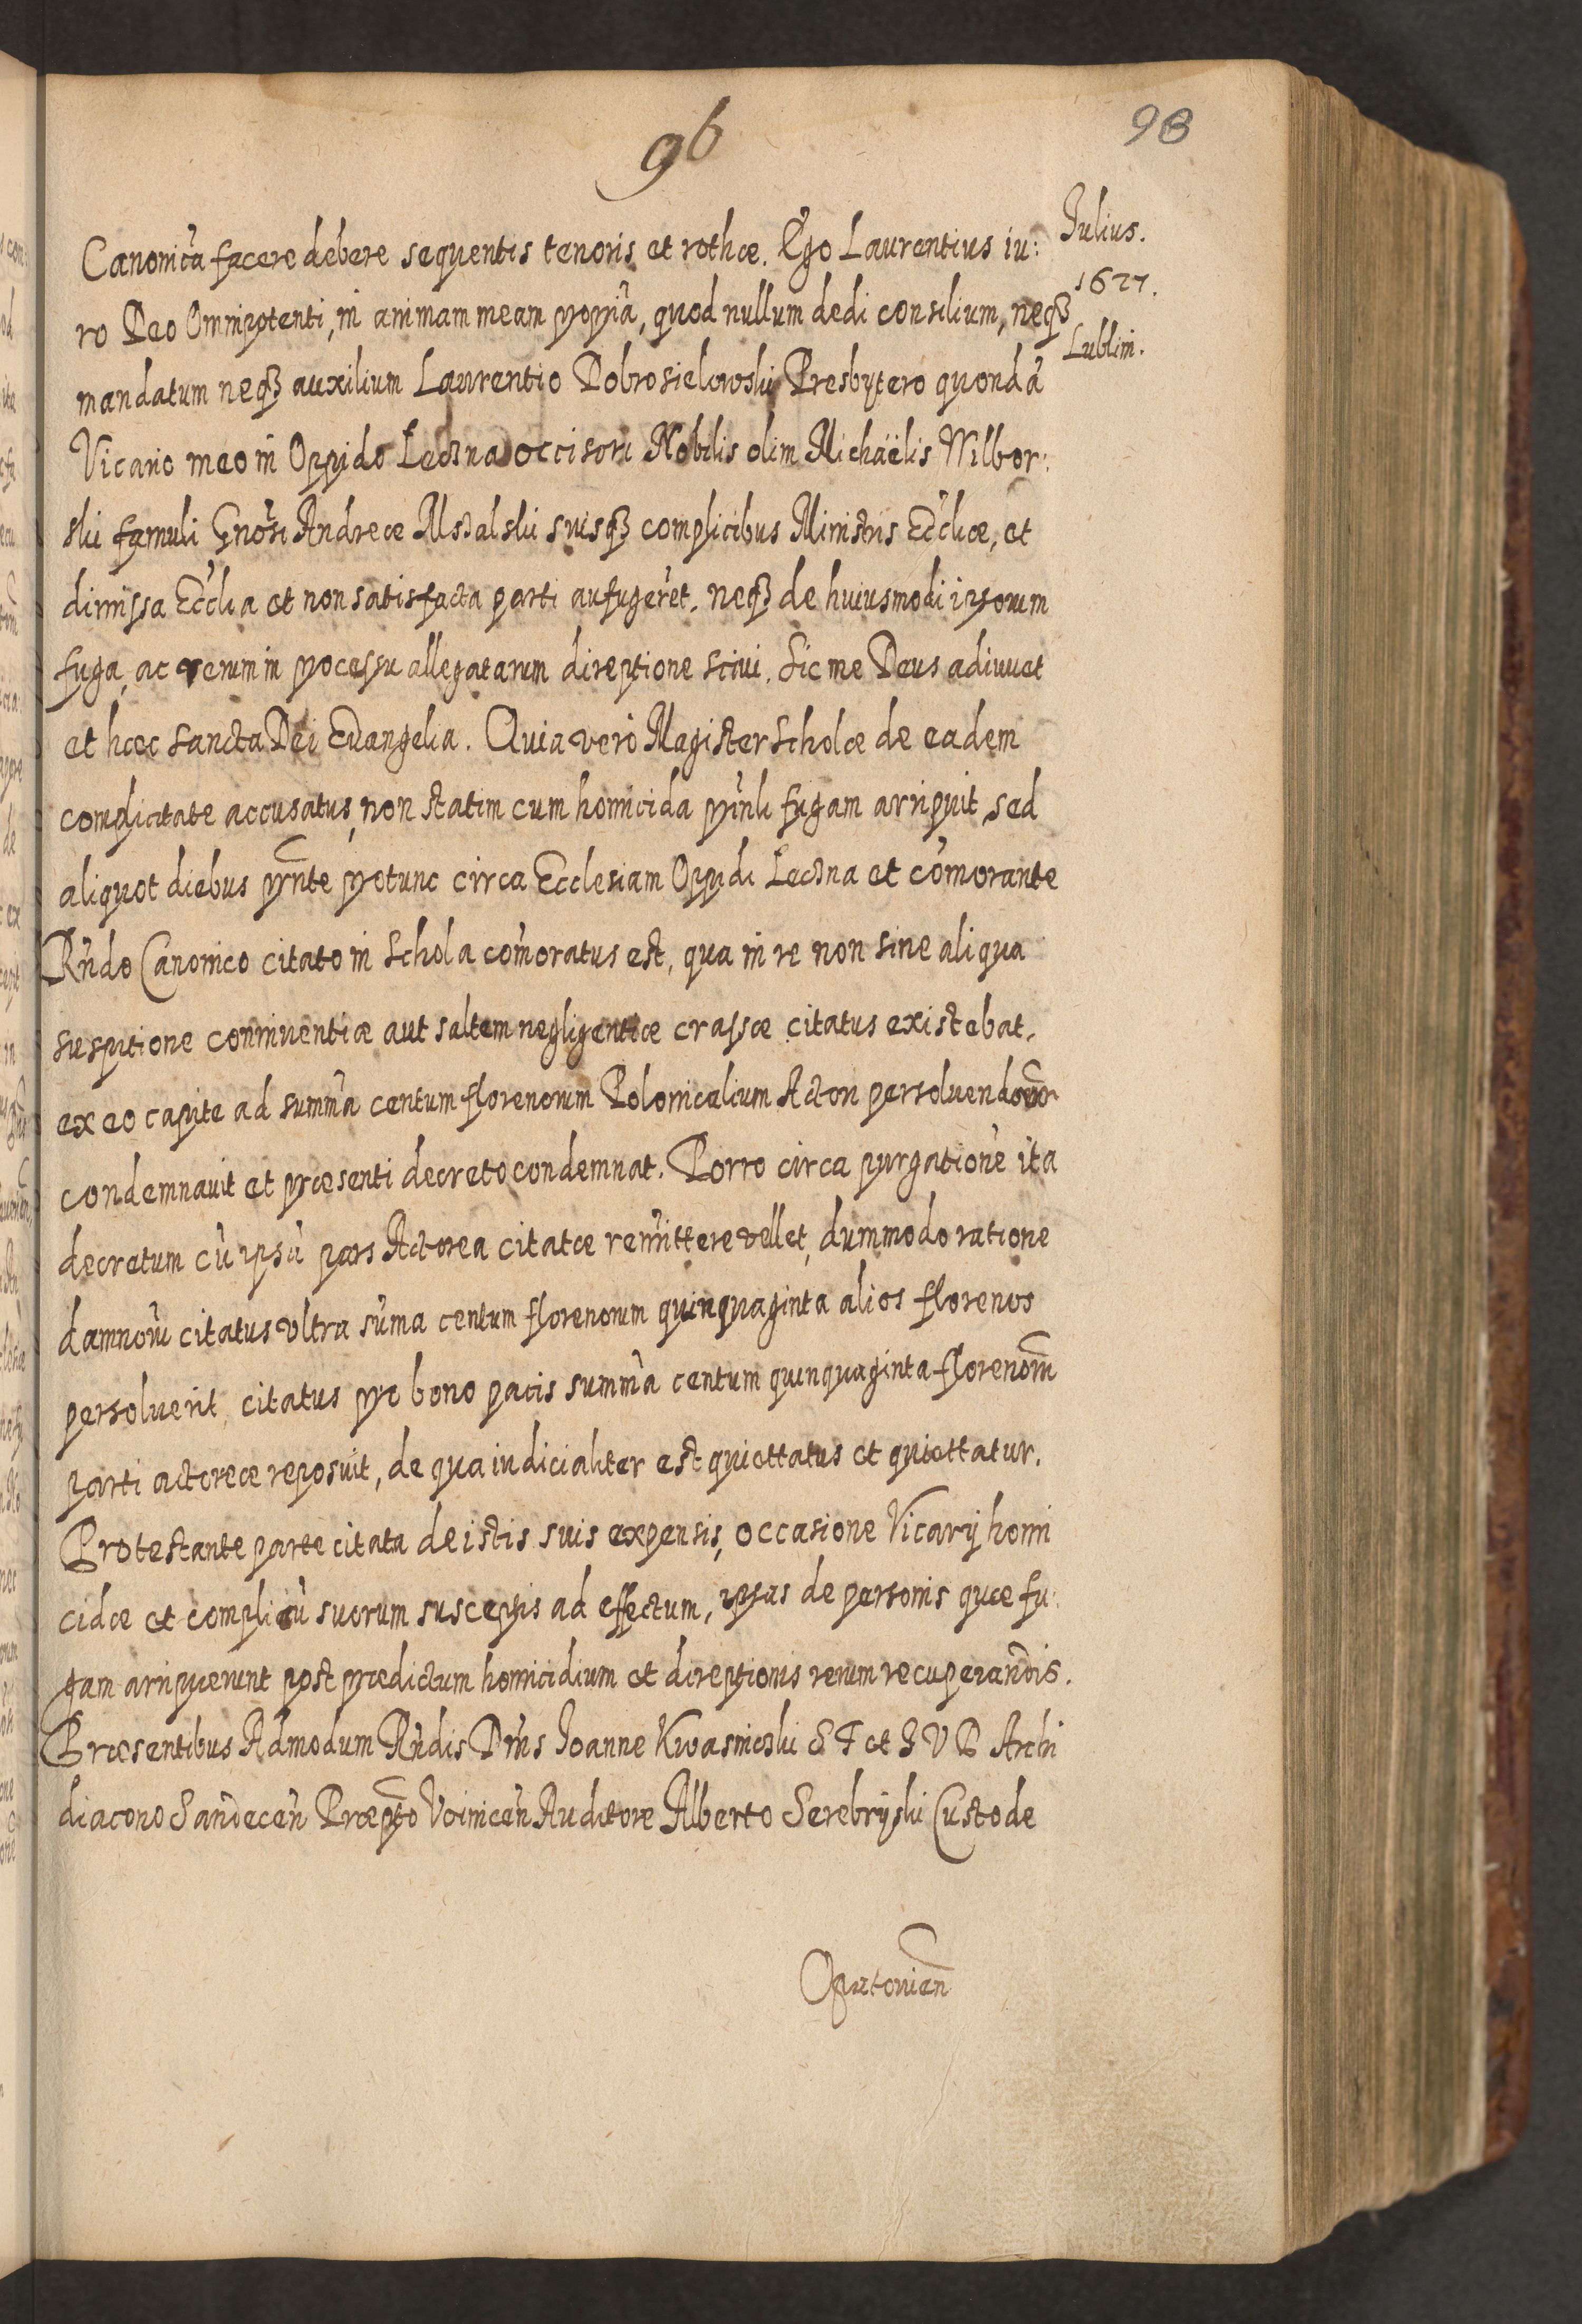 96
98
Julius.
1627.
Lublin.
Canonicã facere debere sequentis tenoris et rothæ. Ego Laurentius iu:
ro Deo Omnipotenti, in animam meam propriã, quod nullum dedi consilium, neqȝ
mandatum neqȝ auxilium Laurentio Dobrosielowski Presbytero quondã
Vicario meo in Oppido Leczna occisori Nobilis olim Michaëlis Wilbor:
ski famuli Gnõsi Andreæ Mszalski suisqȝ complicibus Ministris Ecc̃liæ, et
dimissa Ecc̃lia et non satisfacta parti aufugeret. neqȝ de huiusmodi ipsorum
fuga, ac rerum in processu allegatarum direptione sciui. Sic me Deus adiuuet
et hæc sancta Dei Euangelia. Quia vero Magister Scholæ de eadem
complicitate accusatus, non statim cum homicida prĩnli fugam arripuit, sed
aliquot diebus prñte protunc circa Ecclesiam Oppidi Leczna et cõmorante
Rñdo Canonico citato in Schola cõmoratus est, qua in re non sine aliqua
suspitione conniuentiæ aut saltem negligentiæ crassæ citatus existebat,
ex eo capite ad summã centum florenorum Polonicalium Actori persoluendorũ
condemnauit et præsenti decreto condemnat. Porro circa purgationẽ ita
decretum cũ ipsũ pars Actorea citatæ remittere vellet, dummodo ratione
damnorũ citatus vltra sũma centum florenorum quinquaginta alios florenos
persoluerit, citatus pro bono pacis summã centum quinquaginta florenorũ
parti actoreæ reposuit, de qua iudicialiter est quiettatus et quiettatur.
Protestante parte citata de istis suis expensis, occasione Vicarij homi
cidæ et complicũ suorum susceptis ad effectum, ipsas de personis quæ fu:
gam arripuerunt post prædictum homicidium et direptionis rerum recuperandis.
Præsentibus Admodum Rñdis Dñis Joanne Kwasnicski S T et J V D Archi
diacono Sandecen̄ Præpto Voinicen̄ Auditore Alberto Serebryski Custode
Opatouien̄